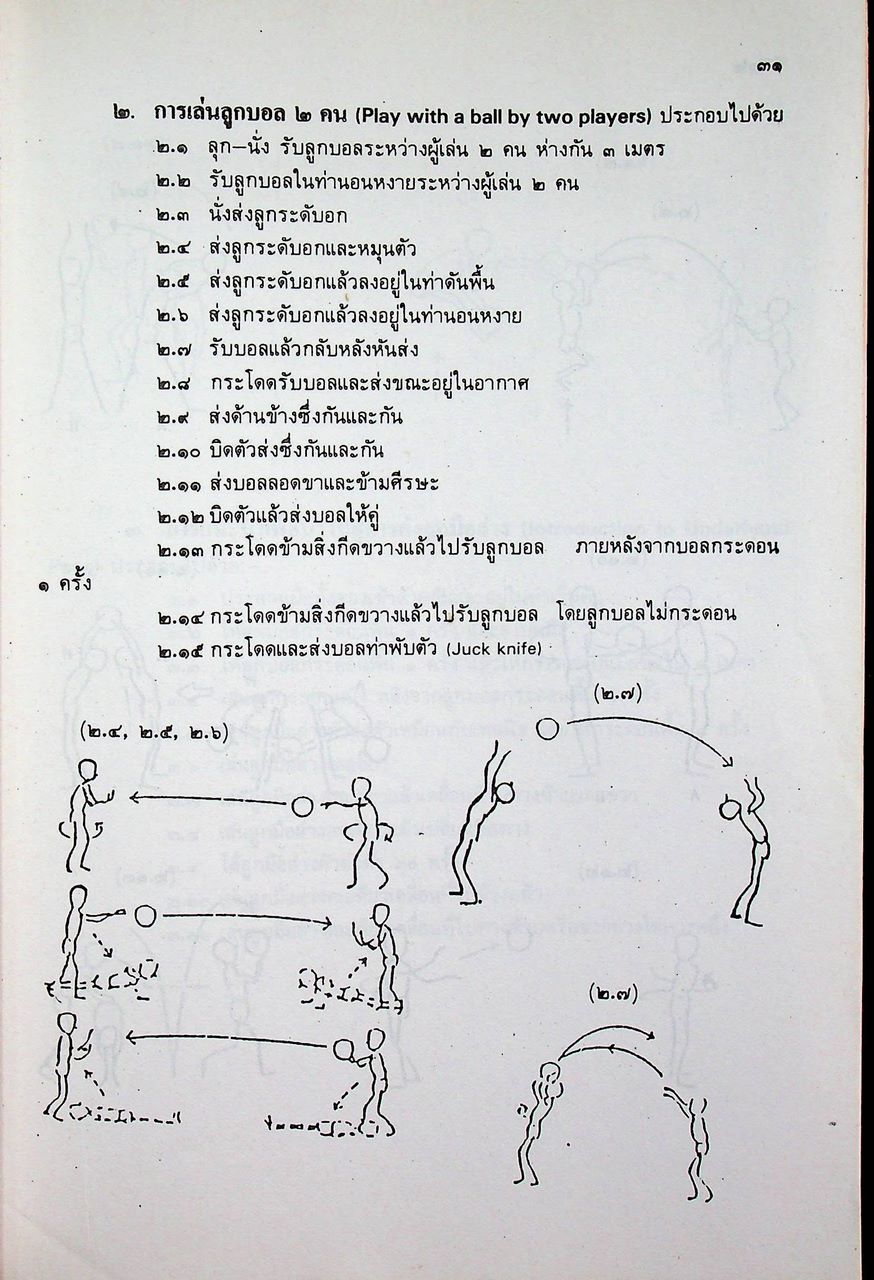 ๓๑
๒. การเล่นลูกบอล ๒ คน (Play with a ball by two players) ประกอบไปด้วย
๒.๑ ลุก–นั่ง รับลูกบอลระหว่างผู้เล่น ๒ คน ห่างกัน ๓ เมตร
๒.๒ รับลูกบอลในท่านอนหงายระหว่างผู้เล่น ๒ คน
๒.๓ นั่งส่งลูกระดับอก
๒.๔ ส่งลูกระดับอกและหมุนตัว
๒.๕ ส่งลูกระดับอกแล้วลงอยู่ในท่าดันพื้น
๒.๖ ส่งลูกระดับอกแล้วลงอยู่ในท่านอนหงาย
๒.๗ รับบอลแล้วกลับหลังหันส่ง
๒.๘ กระโดดรับบอลและส่งขณะอยู่ในอากาศ
๒.๙ ส่งด้านข้างซึ่งกันและกัน
๒.๑๐ บิดตัวส่งซึ่งกันและกัน
๒.๑๑ ส่งบอลลอดขาและข้ามศีรษะ
๒.๑๒ บิดตัวแล้วส่งบอลให้คู่
๒.๑๓ กระโดดข้ามสิ่งกีดขวางแล้วไปรับลูกบอล ภายหลังจากบอลกระดอน
๑ ครั้ง
๒.๑๔ กระโดดข้ามสิ่งกีดขวางแล้วไปรับลูกบอล โดยลูกบอลไม่กระดอน
๒.๑๕ กระโดดและส่งบอลท่าพับตัว (Juck knife)
(๒.๗)
(๒.๔, ๒.๕, ๒.๖)
(๒.๗)